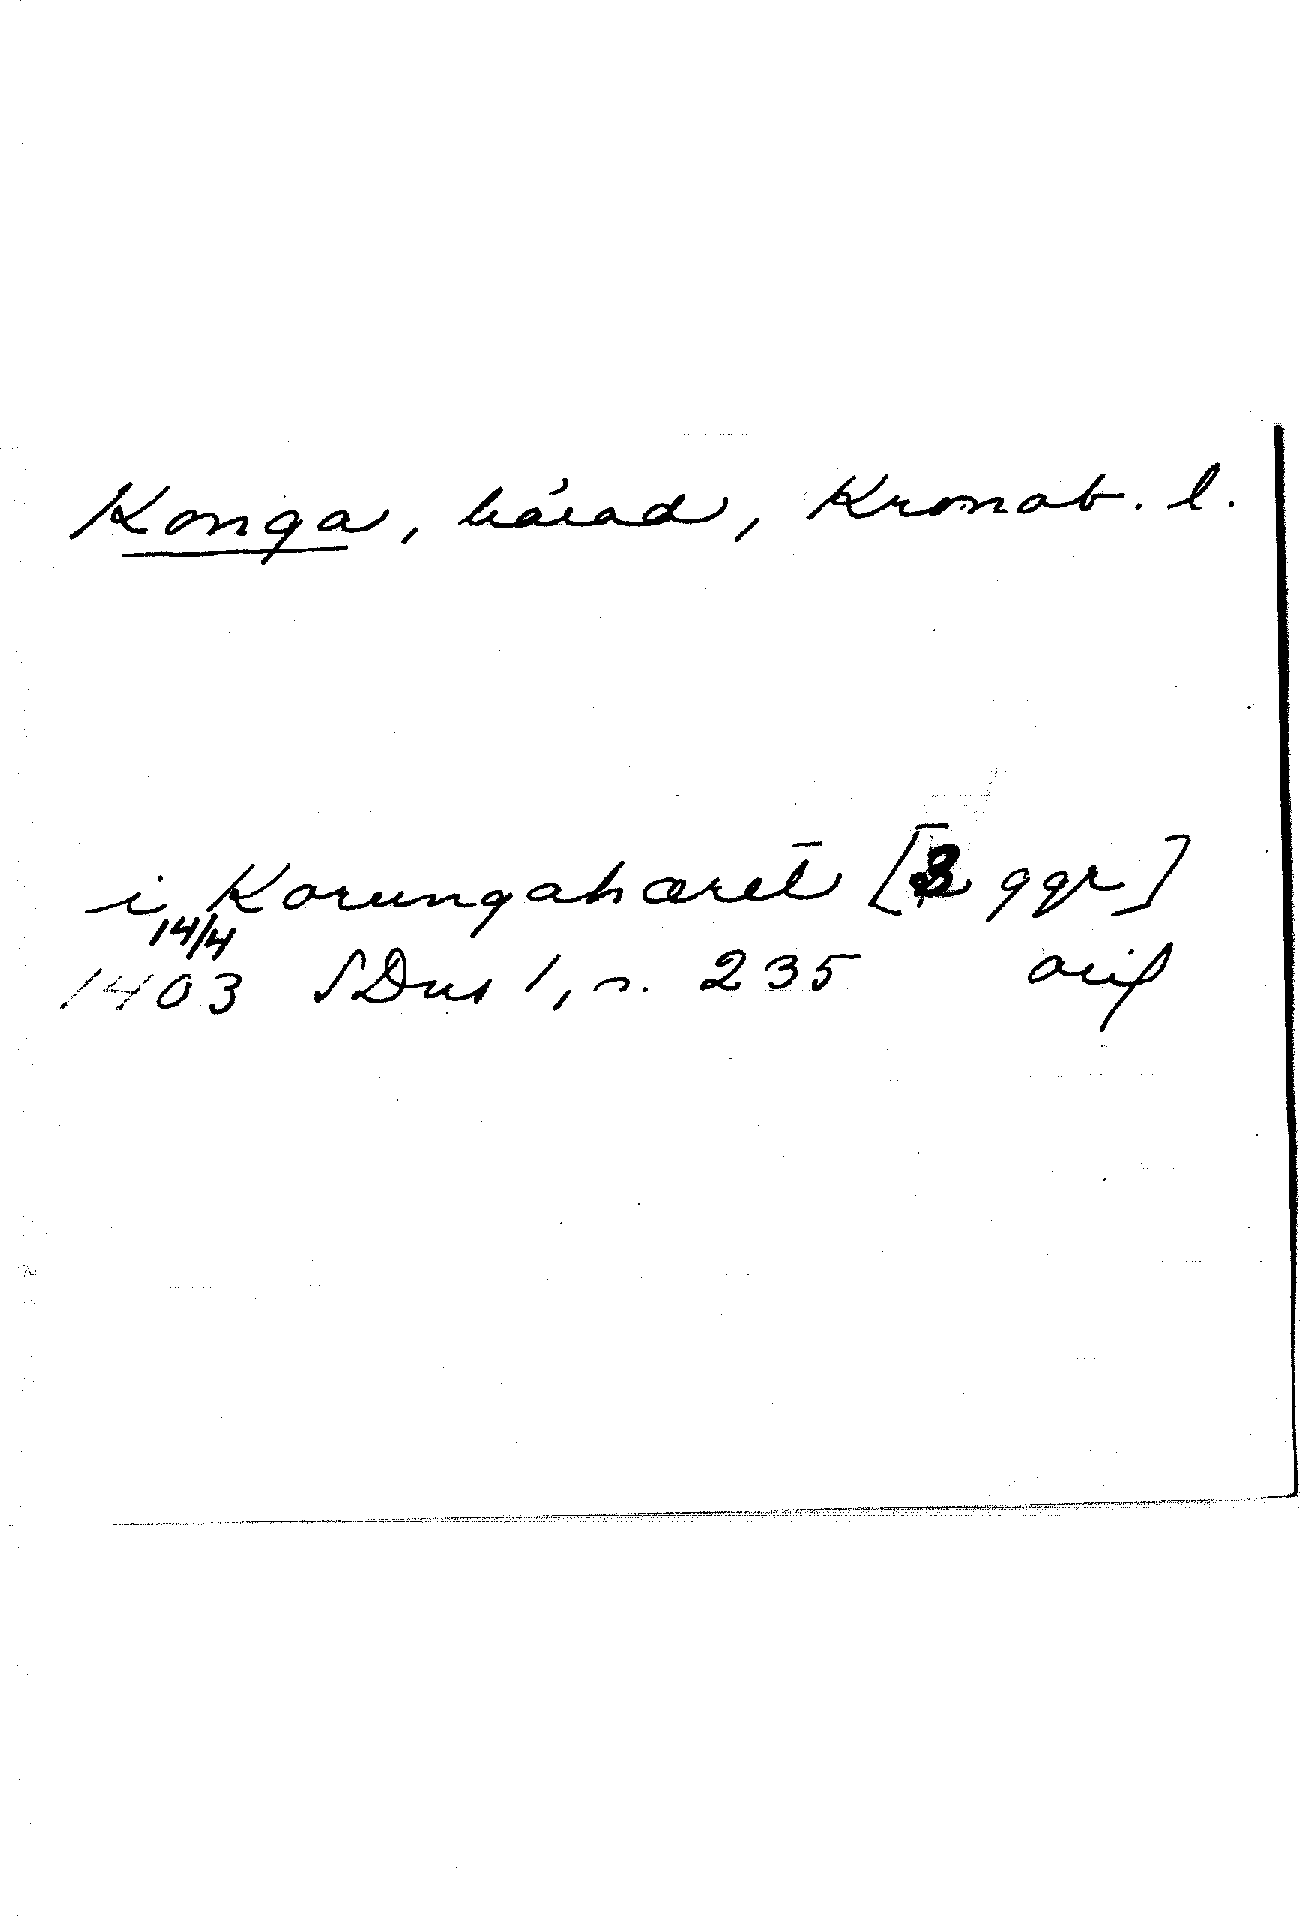 Konga, härad, Kronob. l.
i Korungahæret̄ [3 ggr]
14/4
1403 SDns 1, s. 235 orig